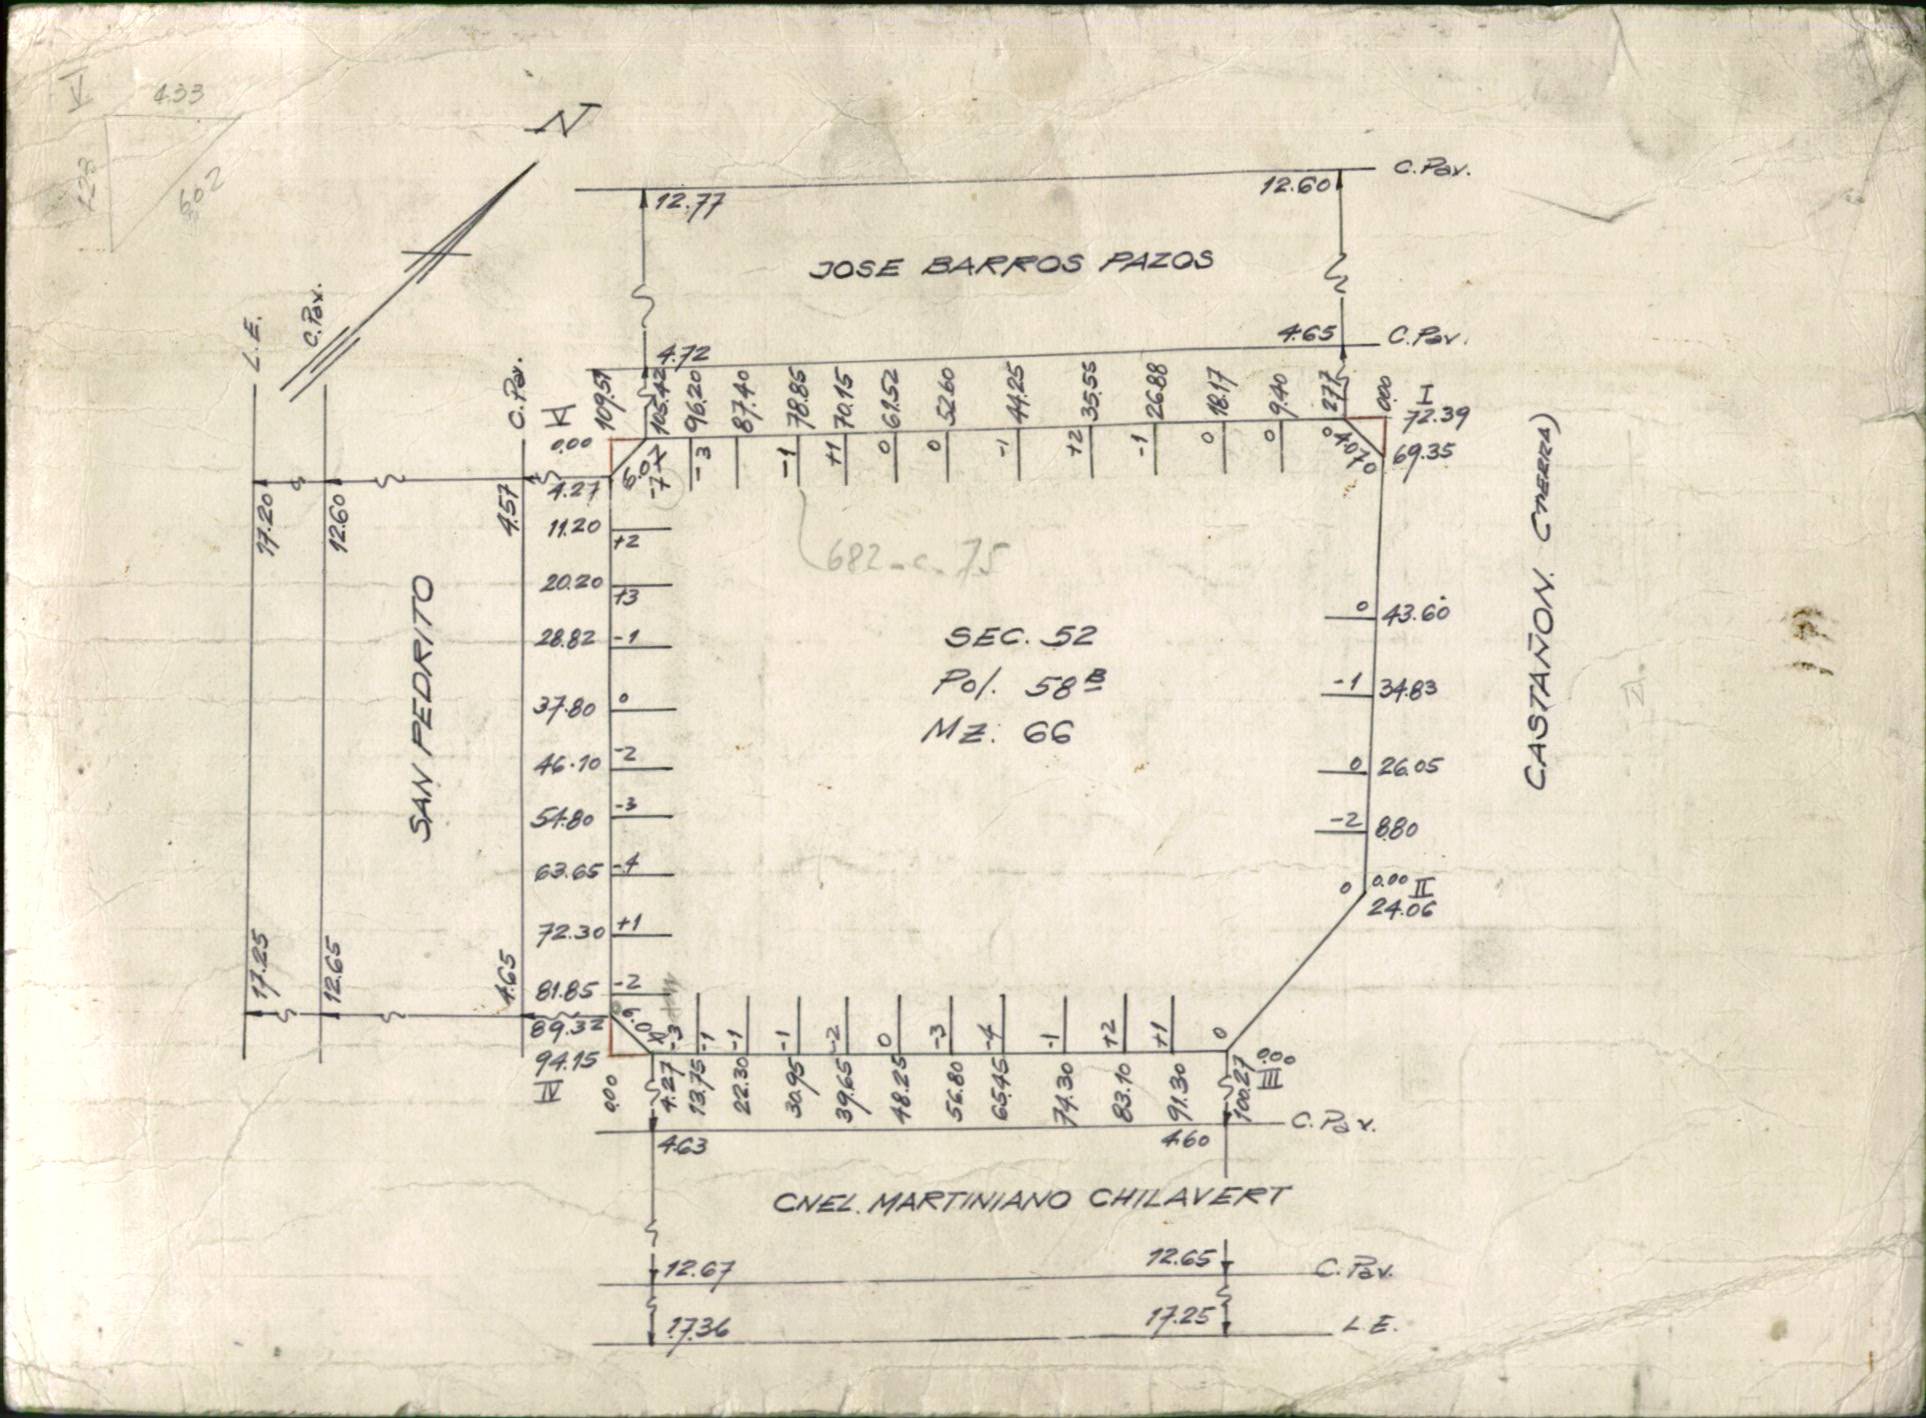 V
433
423
602
N
L.E.
C.Pav.
C.Pav.
12.77
12.60
C.Pav.
JOSE BARROS PAZOS
4.72
4.65
C.Pav.
109.57
105.42
96.20
87.40
78.85
70.15
61.52
52.60
44.25
35.55
26.88
18.17
9.40
2.77
0.00
I
72.39
69.35
0.00
-3
-1
+1
0
0
-1
+2
-1
0
0
0
4.07
0
17.20
12.60
4.57
4.27
11.20
+2
20.20
+3
28.82
-1
37.80
0
46.10
-2
54.80
-3
63.65
-4
72.30
+1
81.85
-2
89.32
94.15
IV
SAN PEDRITO
17.25
12.65
4.65
682-c-75
SEC. 52
Pol. 58B
Mz: 66
0 43.60
-1 34.83
0 26.05
-2 8.80
0 0.00 II
24.06
CASTAÑON. (TIERRA)
-3
-1
-1
-1
-2
0
-3
-4
-1
+2
+1
0
0.00
4.27
13.75
22.30
30.95
39.65
48.25
56.80
65.45
74.30
83.10
91.30
100.27
0.00
III
4.63
4.60
C.Pav.
CNEL. MARTINIANO CHILAVERT
12.67
12.65
C.Pav.
17.36
17.25
L.E.